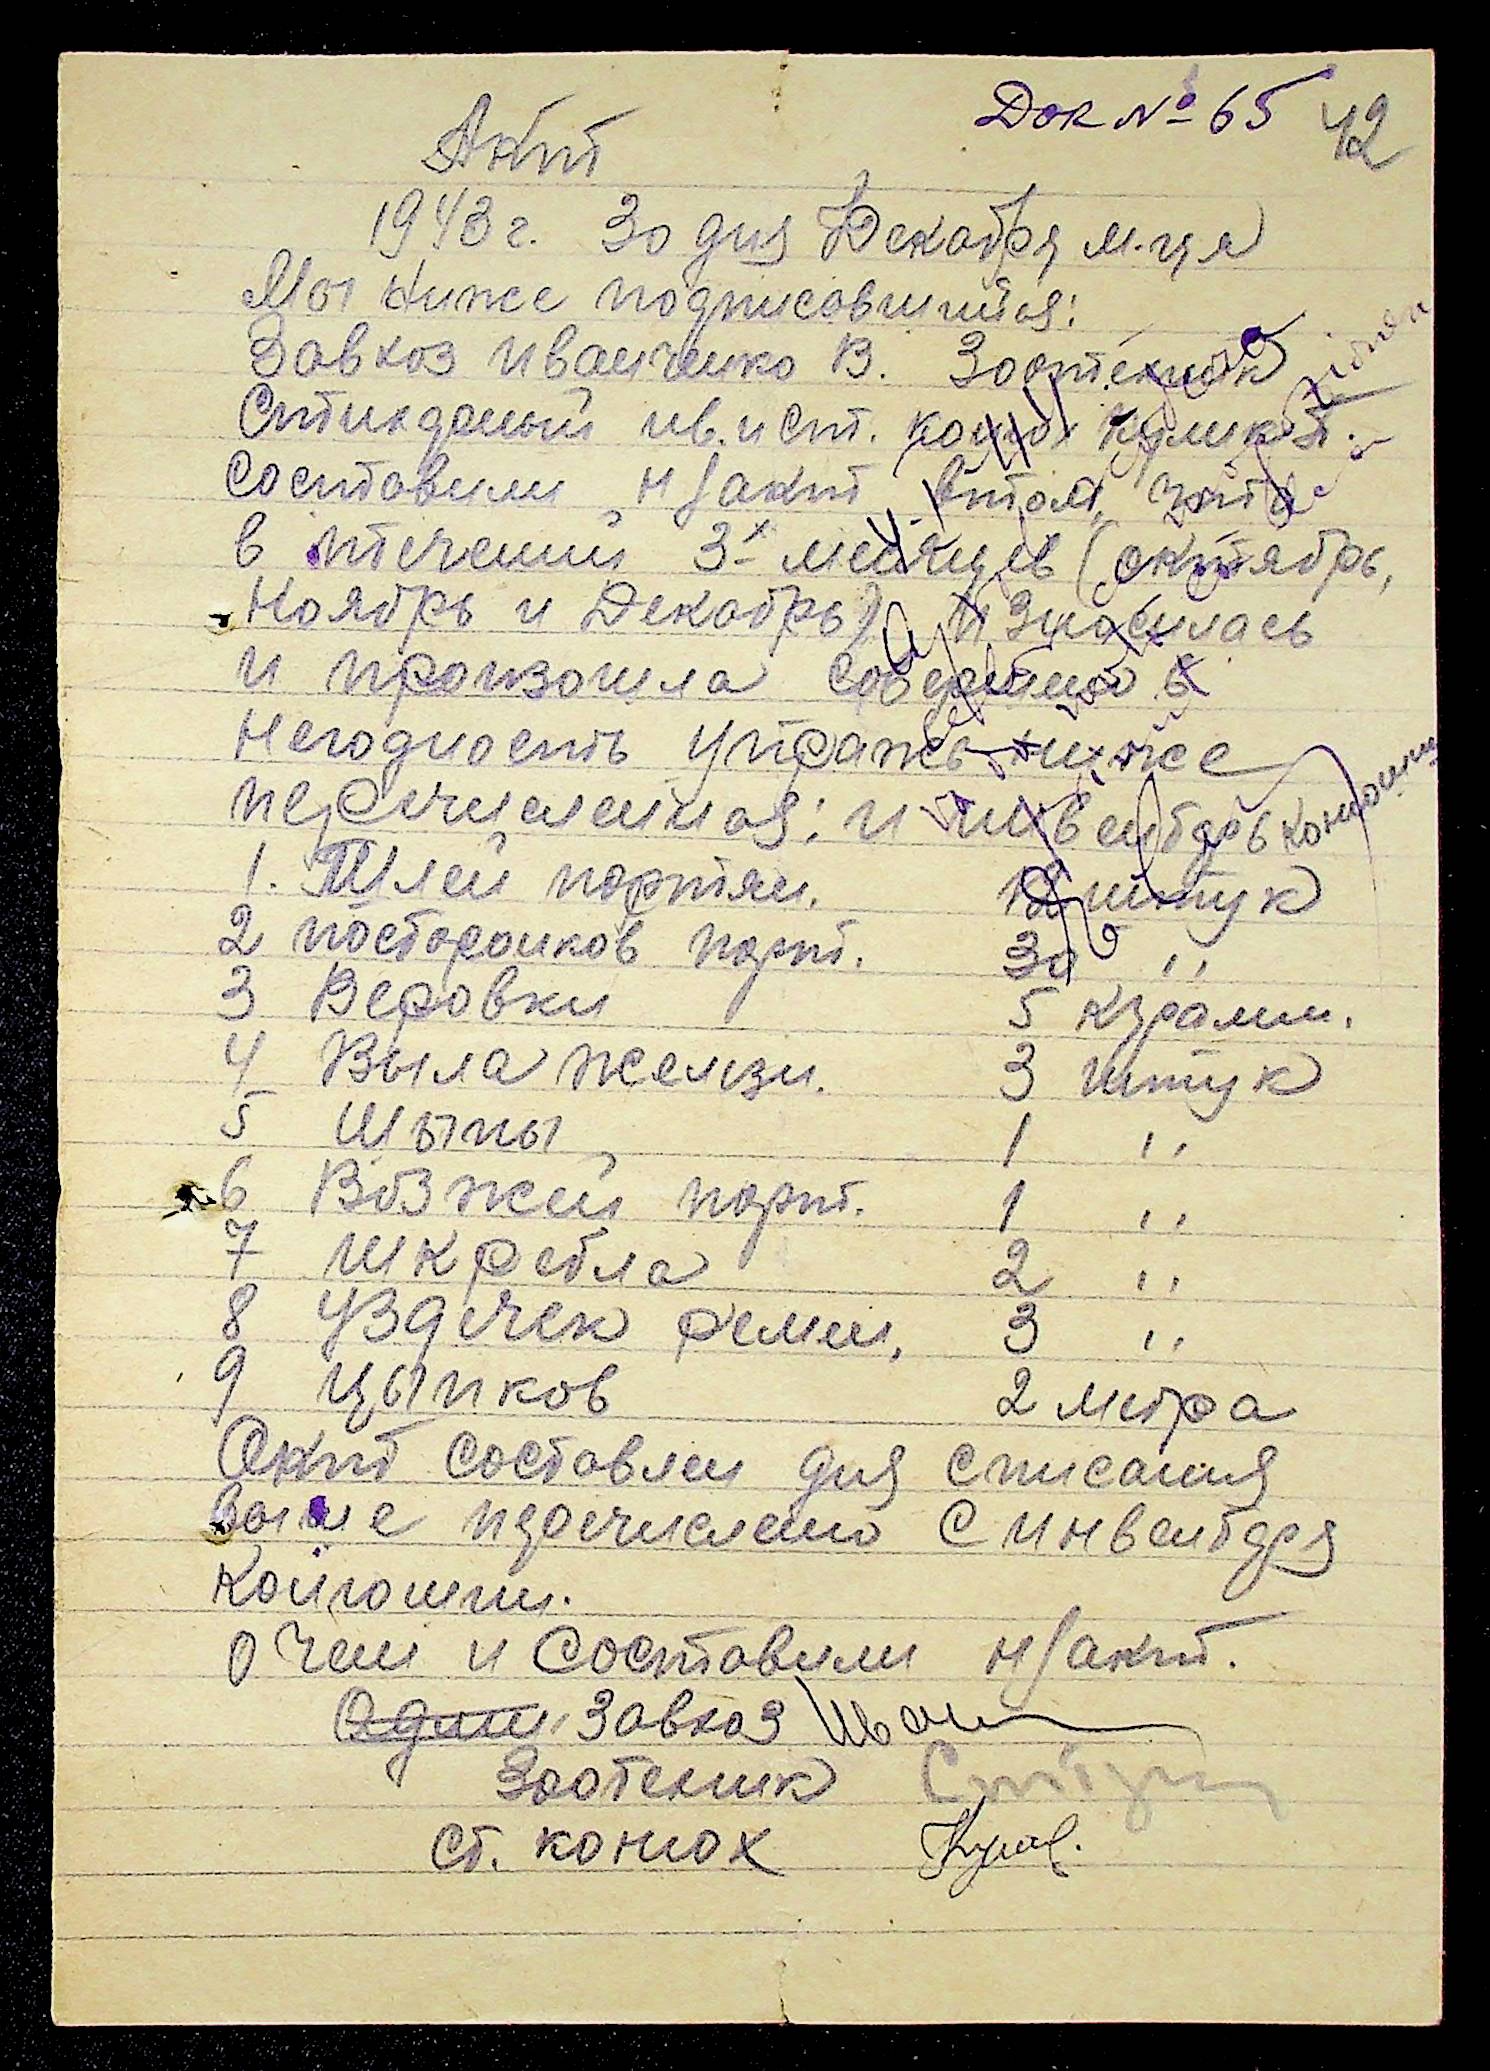 Док № 65 42
Акт
1943 г. 30 дня Декабря м-ця
Мы ниже подписовшийся:
Завхоз Иванченко В. Зоотехник
ив. и ст. конюх Кулик
состовили н/акт втом, что
в птечении 3х месяцев (октябрь,
Ноябрь и Декабрь) Износилась
и произошла совершено в
негодность упражь ниже
перечисленная: и инвентарь конюшни
1. Шлей портян. 12 штук
2 посторонков порт. 30 ,,
3 Веровки 5 кграмм.
4 Выла желизн. 3 штук
5 Шыны 1 ,,
6 Возжей порт. 1 ,,
7 шкребла 2 ,,
8 Уздечек ремен. 3 ,,
9 цыпков 2 метра
Акт составлен для списания
выше перечислено с инвентаря
Конюшни.
О чем и Состовили н/акт.
Завхоз Иван
Зоотехник
ст. конюх